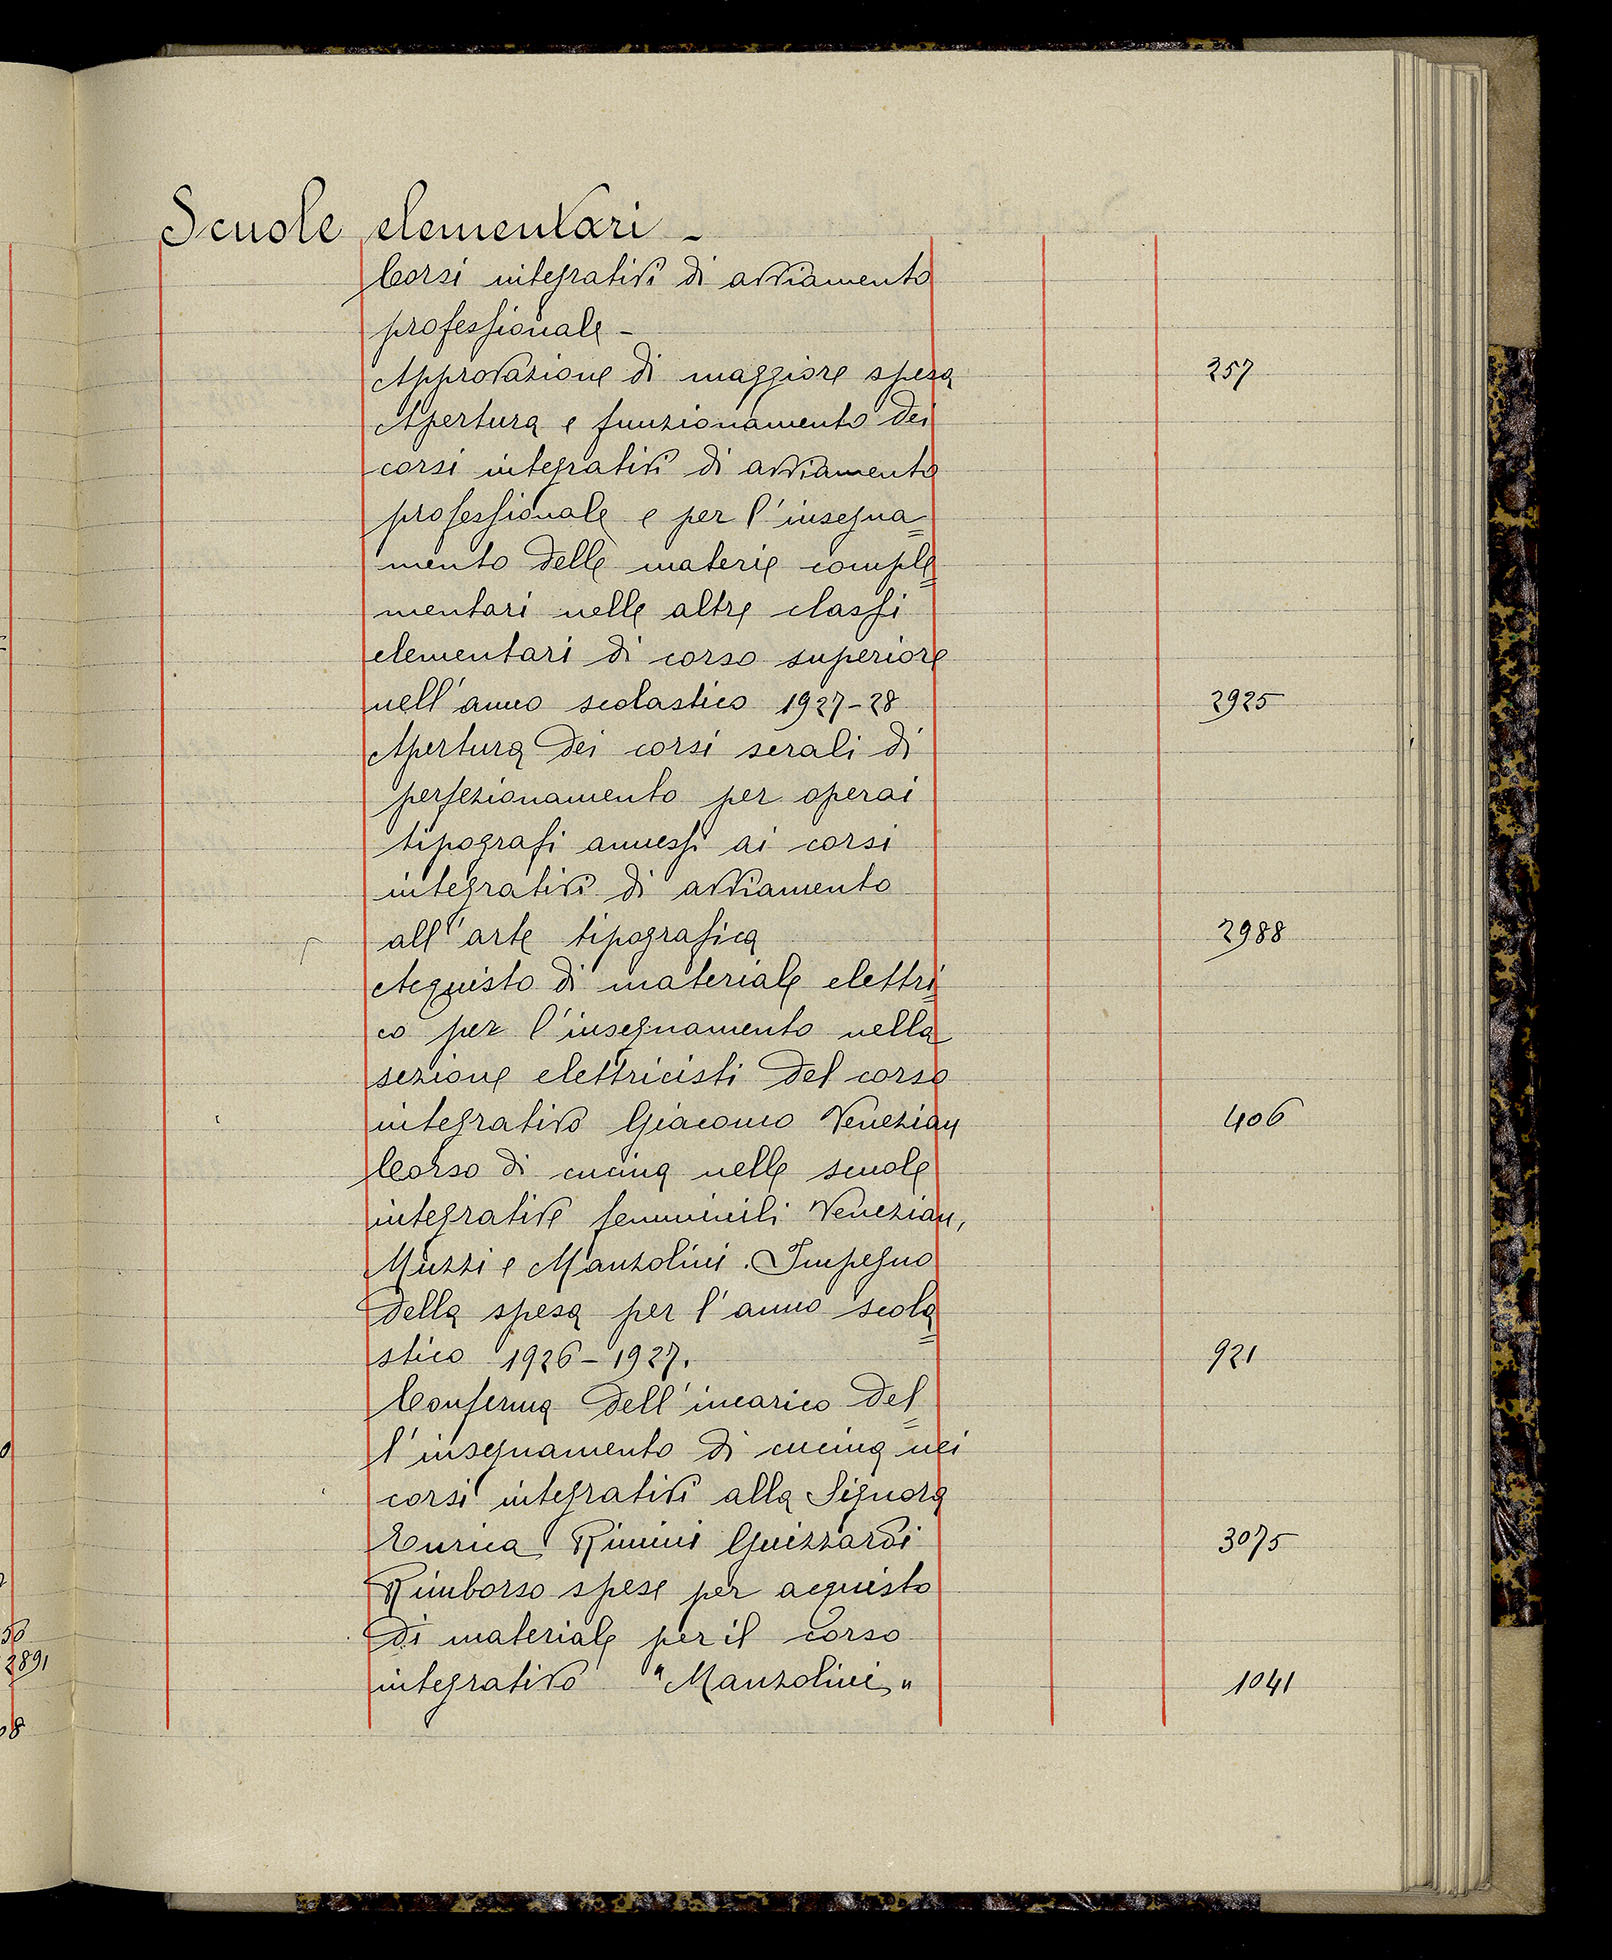 Scuole elementari -
Corsi integrativi di avviamento
professionale -
Approvazione di maggiore spesa 257
Apertura e funzionamento dei
corsi integrativi di avviamento
professionale e per l'insegna=
mento delle materie comple=
mentari nelle altre classi
elementari di corso superiore
nell'anno scolastico 1927-28 2925
Apertura dei corsi serali di
perfezionamento per operai
tipografi annessi ai corsi
integrativi di avviamento
all'arte tipografica 2988
Acquisto di materiale elettri=
co per l'insegnamento nella
sezione elettricisti del corso
integrativo Giacomo Venezian 406
Corso di cucina nelle scuole
integrative femminili Venezian,
Muzzi e Manzolini. Impegno
della spesa per l'anno scola=
stico 1926-1927. 921
Conferma dell'incarico del=
l'insegnamento di cucina nei
corsi integrativi alla Signora
Enrica Rimini Guizzardi 3075
Rimborso spese per acquisto
di materiale per il corso
integrativo "Manzolini" 1041
50
2891
08